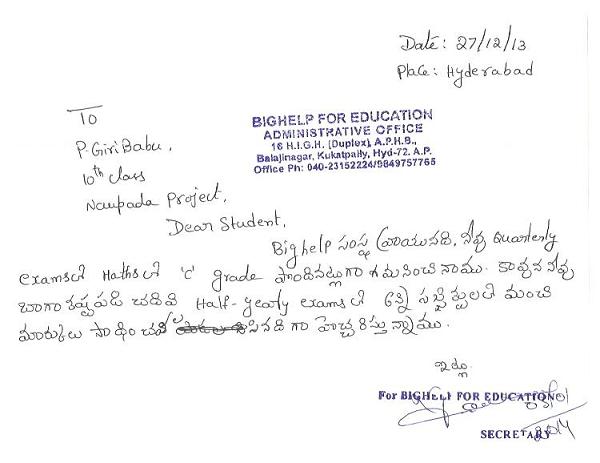 Date: 27/12/13
Place: Hyderabad
To
BIGHELP FOR EDUCATION
ADMINISTRATIVE OFFICE
16 H.I.G.H. (Duplex), A.P.H.B.,
Balajinagar, Kukatpally, Hyd-72. A.P.
Office Ph: 040-23152224/9849757765
P. Giri Babu,
10th class
Naupada Project,
Dear Student,
Bighelp సంస్థ వ్రాయునది, నీవు Quarterly
examsలో Mathsలో 'C' grade పొందినట్లుగా గమనించినాము. కావున నీవు
బాగా కష్టపడి చదివి Half-yearly examsలో అన్ని సబ్జెక్టులలో మంచి
మార్కులు సాధించ గా హెచ్చరిస్తున్నాము.
ఇట్లు
For BIGHELP FOR EDUCATION
SECRETARY